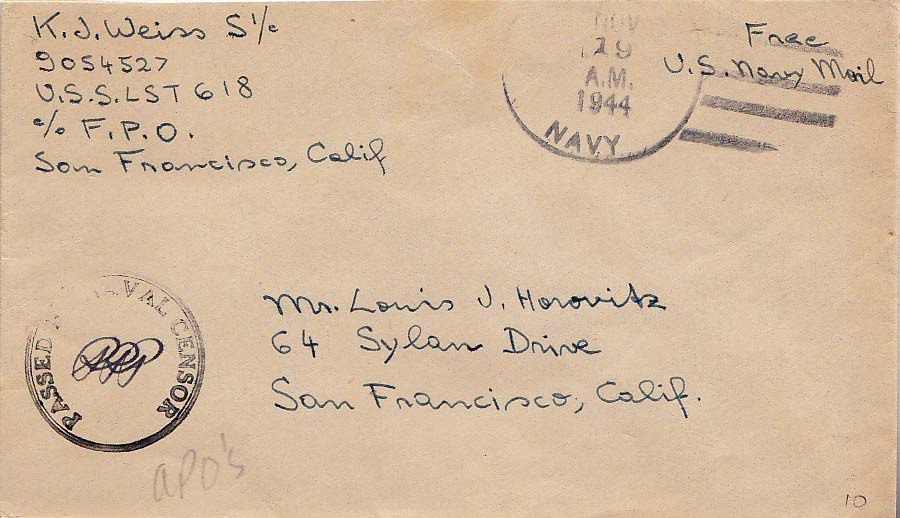 K. J. Weiss S 1/c
9054527
U.S.S. LST 618
c/o F.P.O.
San Francisco, Calif
NOV
19
A.M.
1944
NAVY
Free
U.S. Navy Mail
PASSED NAVAL CENSOR
Mr. Louis J. Horovitz
64 Sylan Drive
San Francisco, Calif.
APO's
10